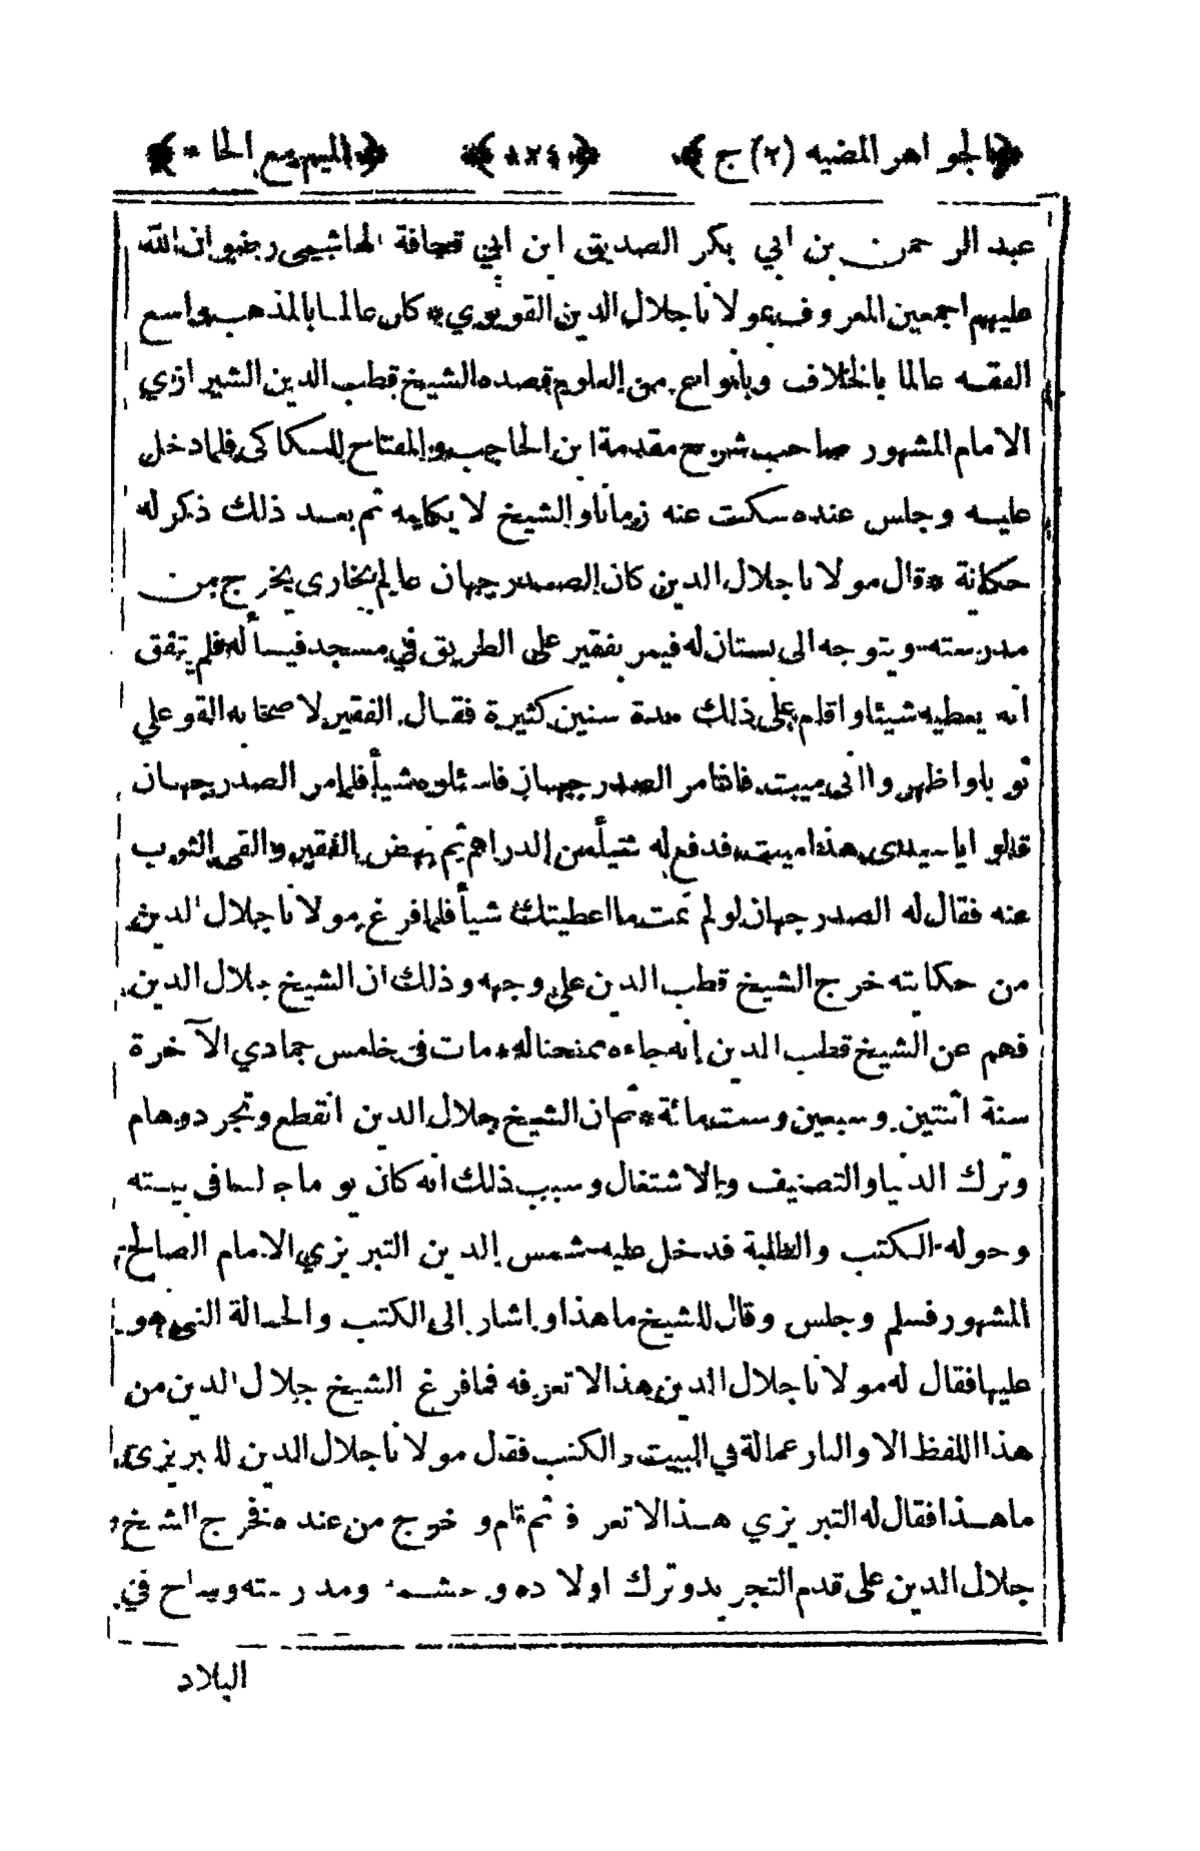 ﴿الجواهر المضيه (٢) ج﴾ ﴿١٢٤﴾ ﴿الميم مع الحا *﴾
عبد الرحمن بن ابي بكر الصديق ابن ابي قحافة الهاشيمى رضوان الله
عليهم اجمعين المعروف بمولانا جلال الدين القونوي * كان عالما بالمذهب واسع
الفقه عالما بالخلاف وبانواع من العلوم قصده الشيخ قطب الدين الشيرازي
الامام المشهور صاحب شرح مقدمة ابن الحاجب والمفتاح للسكاكى فلما دخل
عليه وجلس عنده سكت عنه زمانا والشيخ لا يكلمه ثم بعد ذلك ذكر له
حكاية * قال مولانا جلال الدين كان الصدر جهان عالم بخارى يخرج من
مدرسته ويتوجه الى بستان له فيمر بفقير على الطريق في مسجد فيسأله فلم يتفق
انه يعطيه شيئا واقام على ذلك مدة سنين كثيرة فقال الفقير لاصحابه القو علي
ثوبا واظهروا انى ميت فاذا مر الصدر جهان فاسئلوه شيأ فلما مر الصدر جهان
قالو ايا سيدى هذا ميت فدفع له شيأ من الدراهم ثم نهض الفقير والقى الثوب
عنه فقال له الصدر جهان لو لم تمت ما اعطيتك شيأ فلما فرغ مولانا جلال الدين
من حكايته خرج الشيخ قطب الدين على وجهه وذلك ان الشيخ جلال الدين
فهم عن الشيخ قطب الدين انه جاءه ممتحنا له * مات فى خامس جمادي الآخرة
سنة اثنتين وسبعين وست مائة * ثم ان الشيخ جلال الدين انقطع وتجرد وهام
وترك الدنيا والتصنيف والاشتغال وسبب ذلك انه كان يوما جالسا فى بيته
وحوله الكتب والطلبة فدخل عليه شمس الدين التبريزي الامام الصالح
المشهور فسلم وجلس وقال للشيخ ما هذا واشار الى الكتب والحالة التى هو
عليها فقال له مولانا جلال الدين هذا لا تعرفه فما فرغ الشيخ جلال الدين من
هذا اللفظ الا والنار عمالة في البيت والكتب فقال مولانا جلال الدين للتبريزى
ما هذا فقال له التبريزي هذا لا تعرفه ثم قام وخرج من عنده فخرج الشيخ
جلال الدين على قدم التجريد وترك اولاده وحشمه ومدرسته وساح في
البلاد